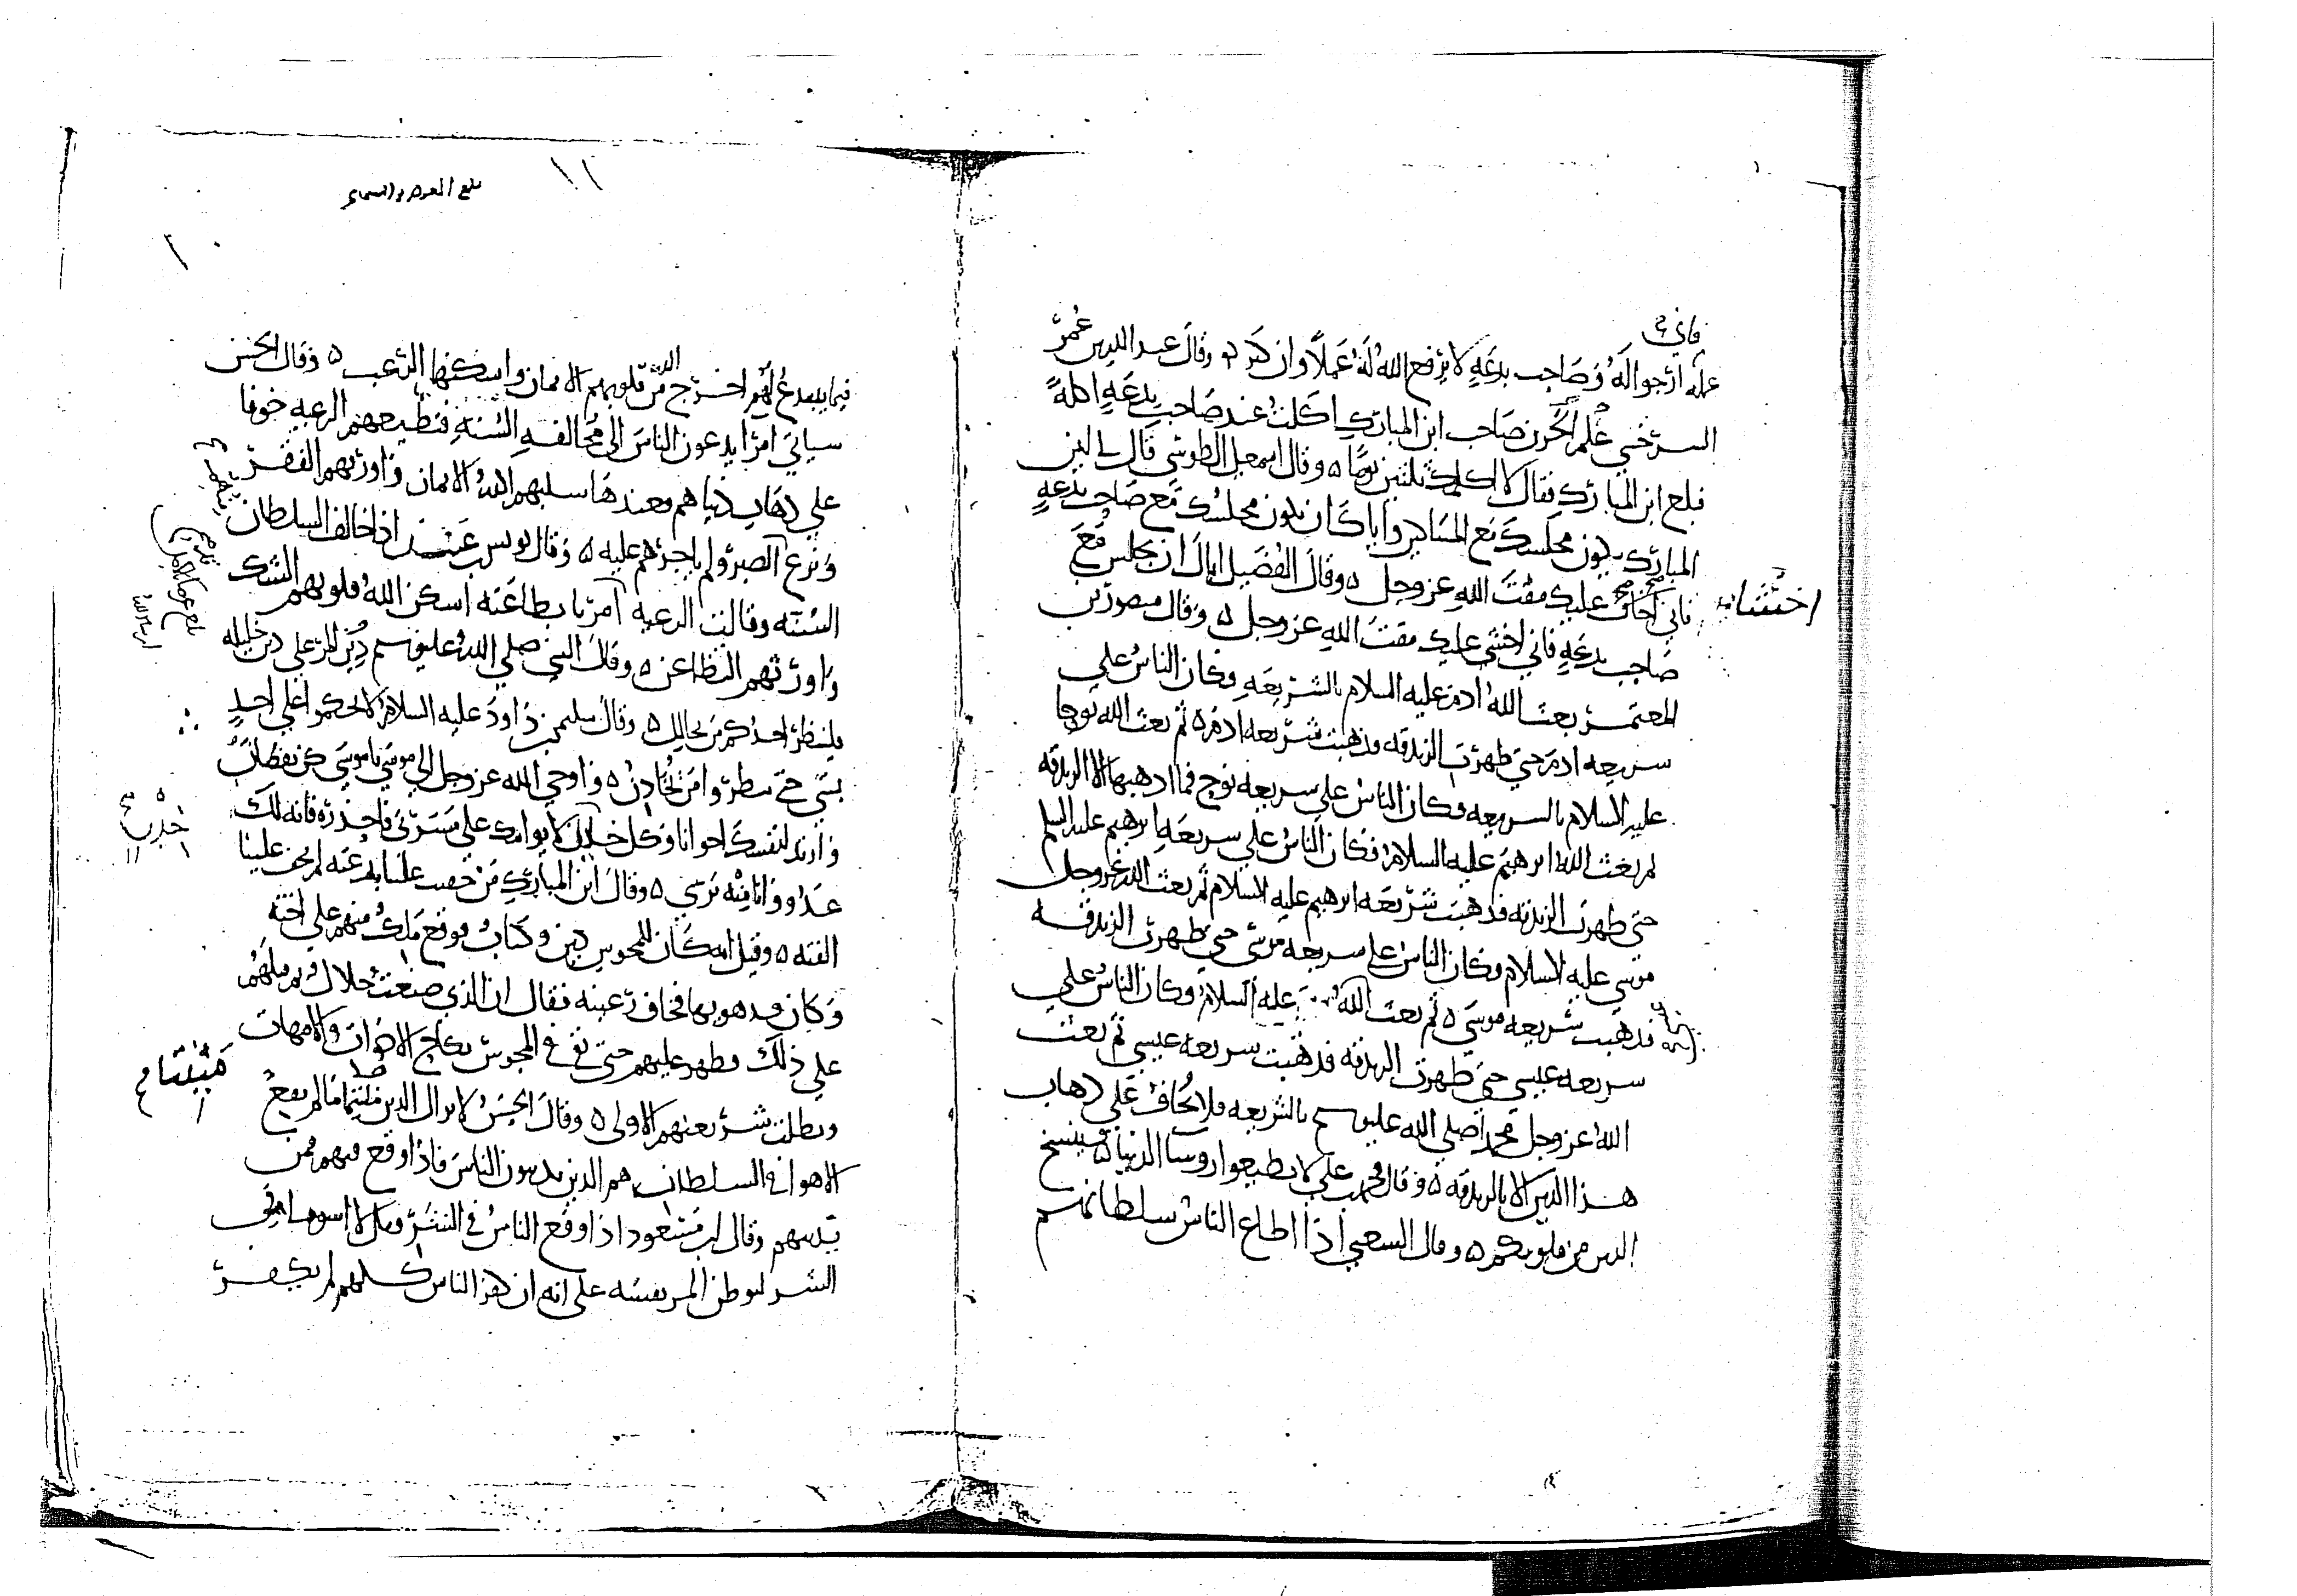 فاني
عمله ارجوا له وصاحب بدعة لا يرفع الله له عملا وان كثر ٥ وقال عبد الله بن عمر
السرخسي علم الحزن صاحب ابن المبارك اكلت عند صاحب بدعة اكلة
فبلغ ابن المبارك فقال لا كلمتك ثلثين يوما ٥ وقال اسمعيل الطوسي قال لي ابن
المبارك يكون مجلسك مع المساكين واياك ان يكون مجلسك مع صاحب بدعة
فاني اخاف عليك مقت الله عز وجل ٥ وقال الفضيل اياك ان تجلس مع
صاحب بدعة فاني اخشى عليك مقت الله عز وجل ٥ وقال منصور بن
المعتمر بعث الله ادم عليه السلام بالشريعة وكان الناس على
شريعة ادم حتى ظهرت الزندقة فذهبت شريعة ادم ٥ ثم بعث الله نوحا
عليه السلام بالشريعة فكان الناس على شريعة نوح فما اذهبها الا الزندقة
ثم بعث الله ابرهيم عليه السلام فكان الناس على شريعة ابرهيم عليه السلم
حتى ظهرت الزندقة فذهبت شريعة ابرهيم عليه السلام ثم بعث الله عز وجل
موسى عليه السلام وكان الناس على شريعة موسى حتى ظهرت الزندقة
فذهبت شريعة موسى ٥ ثم بعث الله عليه السلام وكان الناس على
شريعة عيسى حتى ظهرت الزندقة فذهبت شريعة عيسى ثم بعث
الله عز وجل محمدا صلى الله عليه وسلم بالشريعة فلا يخاف على ذهاب
هذا الدين الا بالزندقة ٥ وقال محمد بن علي لا تطيعوا روسا الدنيا فينسخ
الدين من قلوبكم ٥ وقال الشعبي اذا اطاع الناس سلطانهم
بلغ العرض والسماع
فيما يبتدع لهم اخرج الله من قلوبهم الايمان واسكنها الرعب ٥ وقال الحسن
سياتي امرا يدعون الناس الى مخالفة السنة فتطيعهم الرعية خوفا
على ذهاب دنياهم فعندها سلبهم الله الايمان واورثهم الفقر
ونزع الصبر ولم ياجرهم عليه ٥ وقال يونس بن عبيد اذا خالف السلطان
السنة وقالت الرعية امرنا بطاعته اسكن الله قلوبهم الشك
واورثهم التطاعن ٥ وقال النبي صلى الله عليه وسلم دين المر على دين خليله
فلينظر احدكم من يخالل ٥ وقال سليمن بن داود عليه السلام لا تحكموا على احد
بشي حتى تنظروا من يخادن ٥ واوحى الله عز وجل الى موسى يا موسى كن يقظانا
وارتد لنفسك اخوانا وكل خدن لا يواتيك على مسرتي فاحذره فانه لك
عدو وانا منه بري ٥ وقال ابن المبارك من خفيت علينا بدعته لم يخف علينا
الفته ٥ وقيل انه كان للمجوس دين وكتاب فوقع ملك منهم على اخته
وكان قد هويها فخاف رعيته فقال ان الذي صنعت حلال
على ذلك فظهر عليهم حتى بقي في المجوس نكاح الاخوات والامهات
وبطلت شريعتهم الاولى ٥ وقال الحسن لا يزال الدين متينا ما لم يقع
الاهوا في السلطان هم الذين يدينون الناس فاذا وقع فيهم فمن
يدينهم وقال ابن مسعود اذا وقع الناس في الشر
الشر ليوطن المر نفسه على انه ان كفر الناس كلهم لم يكفر